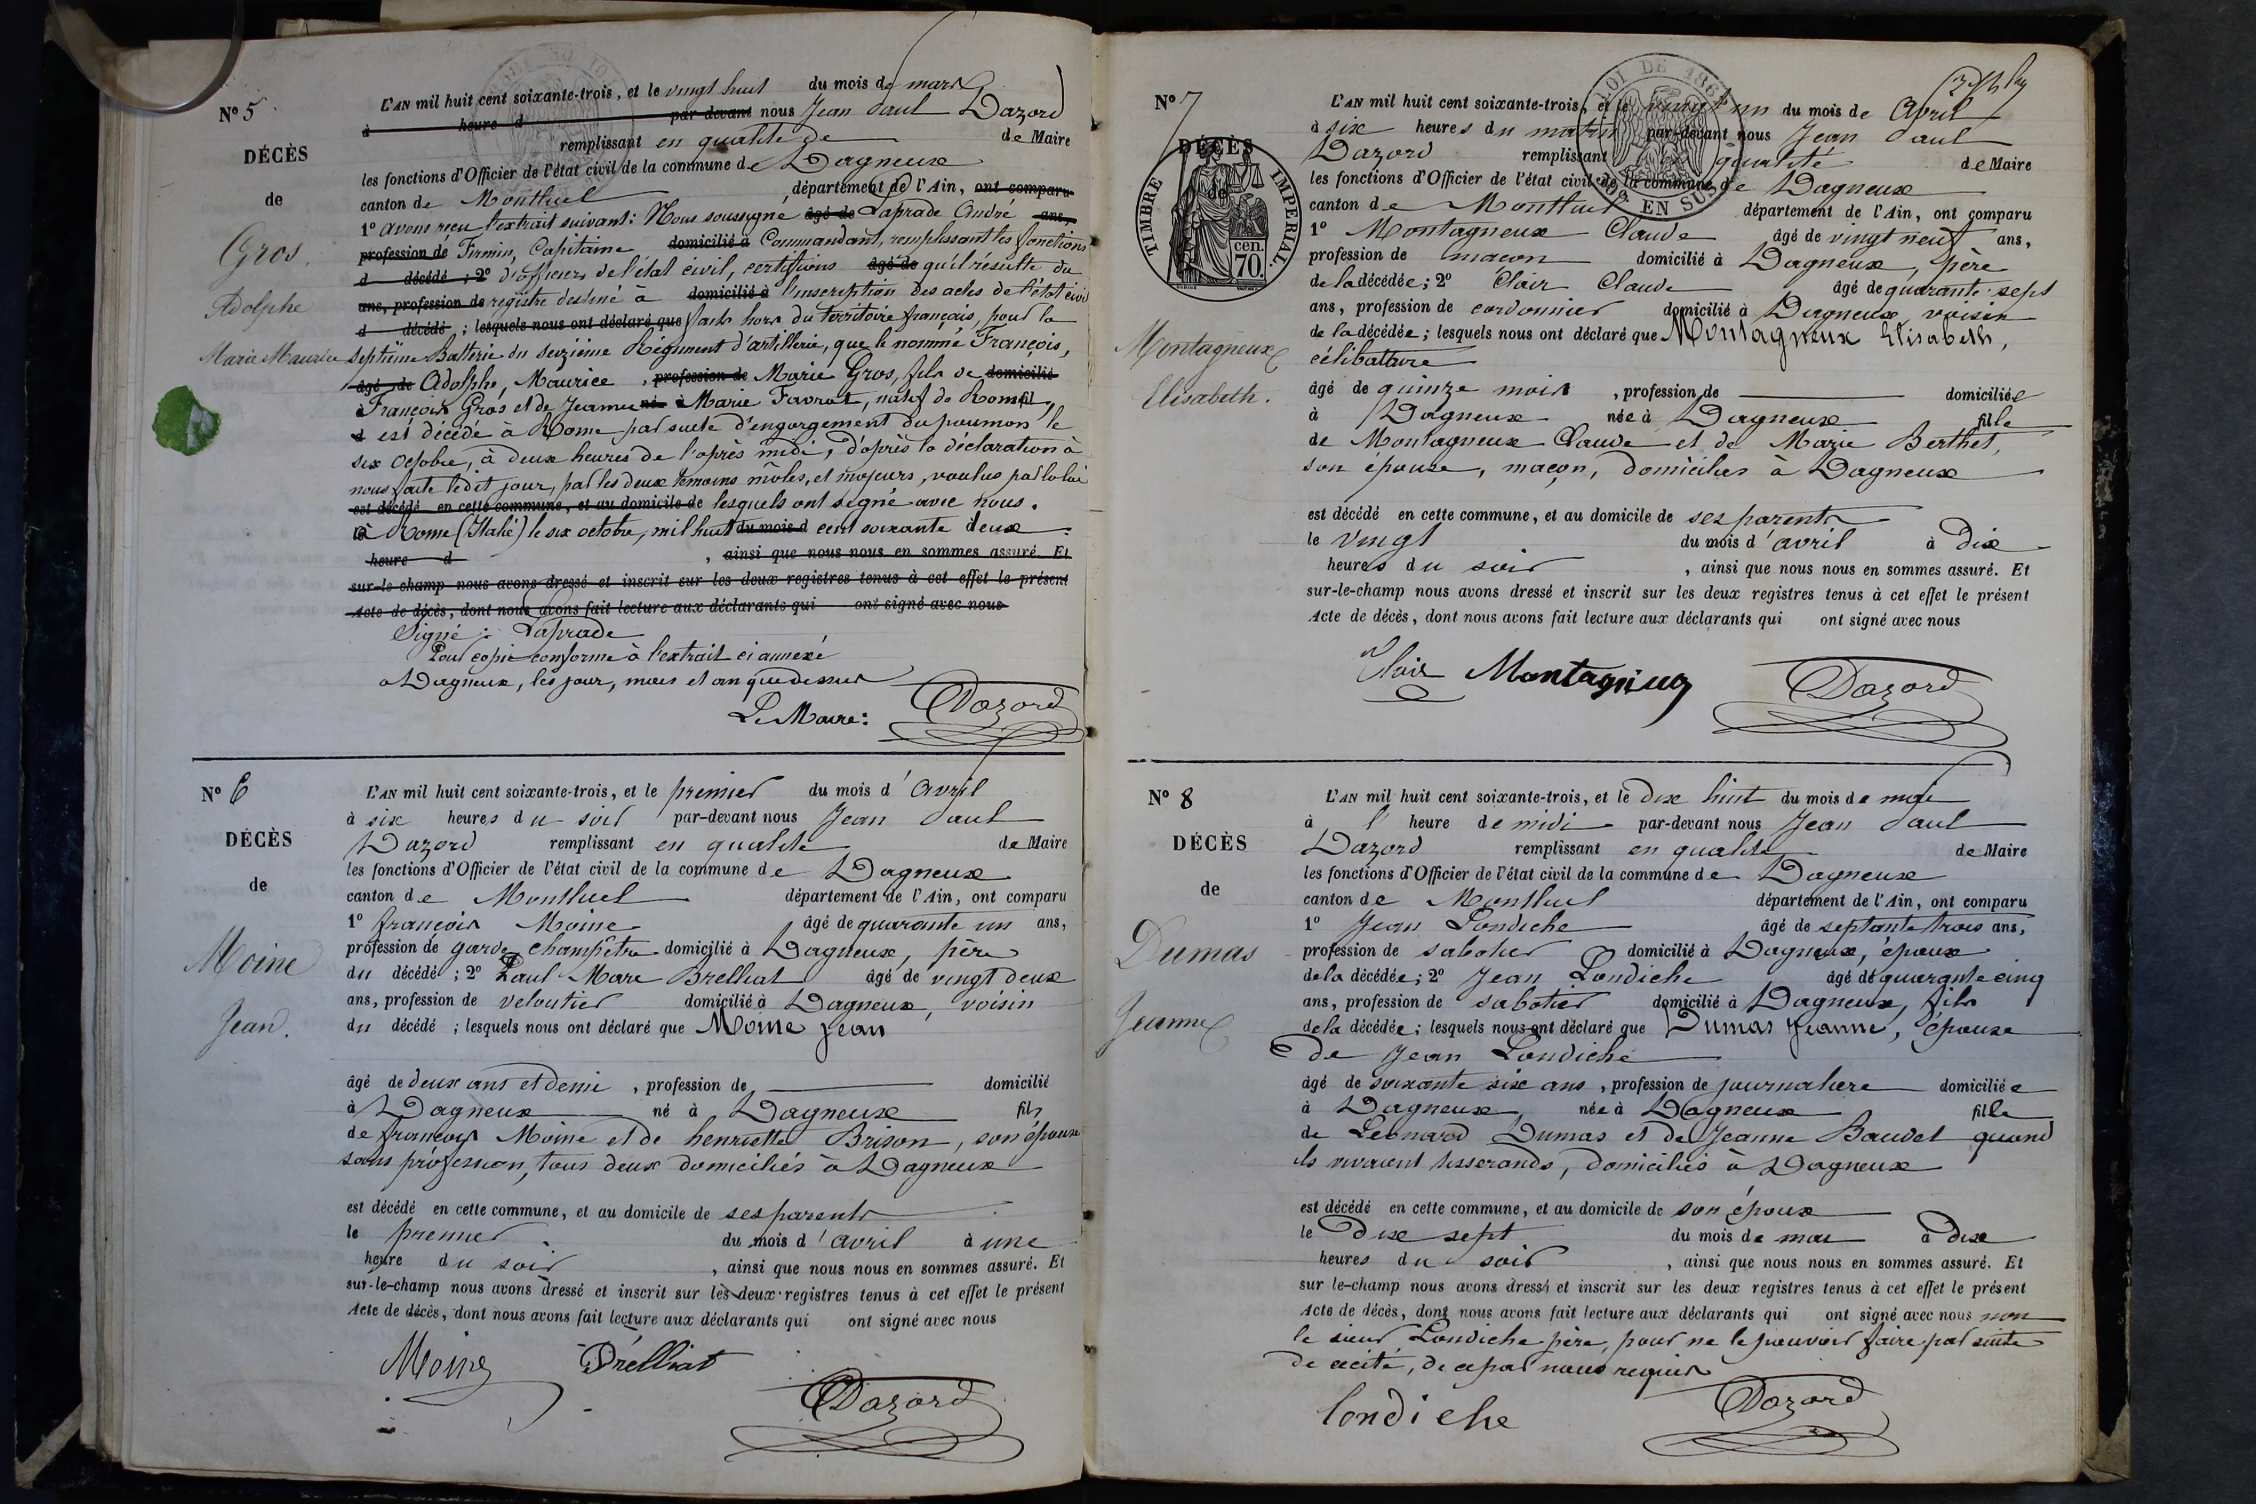 N° 5
DÉCÈS
de
Gros
Adolphe
Marie Maurice
L'AN mil huit cent soixante-trois, et le vingt huit du mois de mars
à heure d par devant nous Jean Paul Dazord
remplissant en qualité de de Maire
les fonctions d'Officier de l'état civil de la commune de Dagneux
canton de Montluel département de l'Ain, ont comparu
1° avons reçu l'extrait suivant: Nous soussigné âgé de Laprade André ans,
profession de Firmin, Capitaine domicilié à Commandant, remplissant les fonctions
d décédé ; 2° d'officier de l'état civil, certifions âgé de qu'il résulte du
ans, profession de registre destiné à domicilié à l'inscription des actes de l'état civil
d décédé ; lesquels nous ont déclaré que faits hors du territoire français, pour la
septième Batterie du seizième Régiment d'artillerie, que le nommé François,
âgé de Adolphe, Maurice, profession de Marie Gros, fils de domicilié
à François Gros et de Jeanne né à Marie Favrot, natif de fil
d est décédé à Rome par suite d'engorgement du poumon le
six octobre, à deux heures de l'après midi, d'après la déclaration à
nous faite ledit jour, par les deux témoins mâles, et majeurs, voulus par la loi
est décédé en cette commune, et au domicile de lesquels ont signé avec nous.
à Rome (Italie) le six octobre, mil huit du mois d cent soixante deux
heure d , ainsi que nous nous en sommes assuré. Et
sur-le-champ nous avons dressé et inscrit sur les deux registres tenus à cet effet le présent
Acte de décès, dont nous avons fait lecture aux déclarants qui ont signé avec nous
Signé : Laprade
Pour copie conforme à l'extrait ci annexé
à Dagneux, les jour, mois et an que dessus
Le Maire: Dazord
N° 6
DÉCÈS
de
Moine
Jean.
L'AN mil huit cent soixante-trois, et le premier du mois d'avril
à six heures du soir par-devant nous Jean Paul
Dazord remplissant en qualité de Maire
les fonctions d'Officier de l'état civil de la commune de Dagneux
canton de Montluel département de l'Ain, ont comparu
1° françois Moine âgé de quarante un ans,
profession de garde champêtre domicilié à Dagneux, père
du décédé ; 2° Paul Marc Brelliat âgé de vingt deux
ans, profession de veloutier domicilié à Dagneux, voisin
du décédé ; lesquels nous ont déclaré que Moine Jean
âgé de deux ans et demi , profession de domicilié
à Dagneux né à Dagneux fils
de françois Moine et de henriette Brison, son épouse
sans profession, tous deux domiciliés à Dagneux
est décédé en cette commune, et au domicile de ses parents
le premier du mois d'avril à une
heure du soir , ainsi que nous nous en sommes assuré. Et
sur-le-champ nous avons dressé et inscrit sur les deux registres tenus à cet effet le présent
Acte de décès, dont nous avons fait lecture aux déclarants qui ont signé avec nous
Moine Brelliat
Dazord
LOI DE 186
EN SUS
N° 7
DÉCÈS
de
TIMBRE IMPÉRIAL
70 cen.
Montagneux
Elisabeth.
L'AN mil huit cent soixante-trois, et le vingt un du mois de Avril
à six heures du matin par-devant nous Jean Paul
Dazord remplissant qualité de Maire
les fonctions d'Officier de l'état civil de la commune de Dagneux
canton de Montluel département de l'Ain, ont comparu
1° Montagneux Claude âgé de vingt neuf ans,
profession de maçon domicilié à Dagneux, père
de la décédée ; 2° Clair Claude âgé de quarante sept
ans, profession de cordonnier domicilié à Dagneux, voisin
de la décédée ; lesquels nous ont déclaré que Montagneux Elisabeth,
célibataire
âgé de quinze mois , profession de domiciliée
à Dagneux née à Dagneux fille
de Montagneux Claude et de Marie Berthet,
son épouse, maçon, domiciliés à Dagneux
est décédé en cette commune, et au domicile de ses parents
le vingt du mois d'avril à dix
heures du soir , ainsi que nous nous en sommes assuré. Et
sur-le-champ nous avons dressé et inscrit sur les deux registres tenus à cet effet le présent
Acte de décès, dont nous avons fait lecture aux déclarants qui ont signé avec nous
Clair Montagneux Dazord
N° 8
DÉCÈS
de
Dumas
Jeanne
L'AN mil huit cent soixante-trois, et le dix huit du mois de mai
à l'heure de midi par-devant nous Jean Paul
Dazord remplissant en qualité de Maire
les fonctions d'Officier de l'état civil de la commune de Dagneux
canton de Montluel département de l'Ain, ont comparu
1° Jean Londiche âgé de septante trois ans,
profession de sabotier domicilié à Dagneux, époux
de la décédée ; 2° Jean Londiche âgé de quarante cinq
ans, profession de sabotier domicilié à Dagneux, fils
de la décédée ; lesquels nous ont déclaré que Dumas Jeanne, épouse
de Jean Londiche
âgé de soixante six ans , profession de journalière domiciliée
à Dagneux, née à Dagneux fille
de Léonard Dumas et de Jeanne Baudet quand
ils vivaient tisserands, domiciliés à Dagneux
est décédé en cette commune, et au domicile de son époux
le Dix sept du mois de mai à dix
heures du soir , ainsi que nous nous en sommes assuré. Et
sur le-champ nous avons dressé et inscrit sur les deux registres tenus à cet effet le présent
Acte de décès, dont nous avons fait lecture aux déclarants qui ont signé avec nous non
le sieur Londiche père, pour ne le pouvoir faire par suite
de cécité, de ce par nous requis
Londiche Dazord